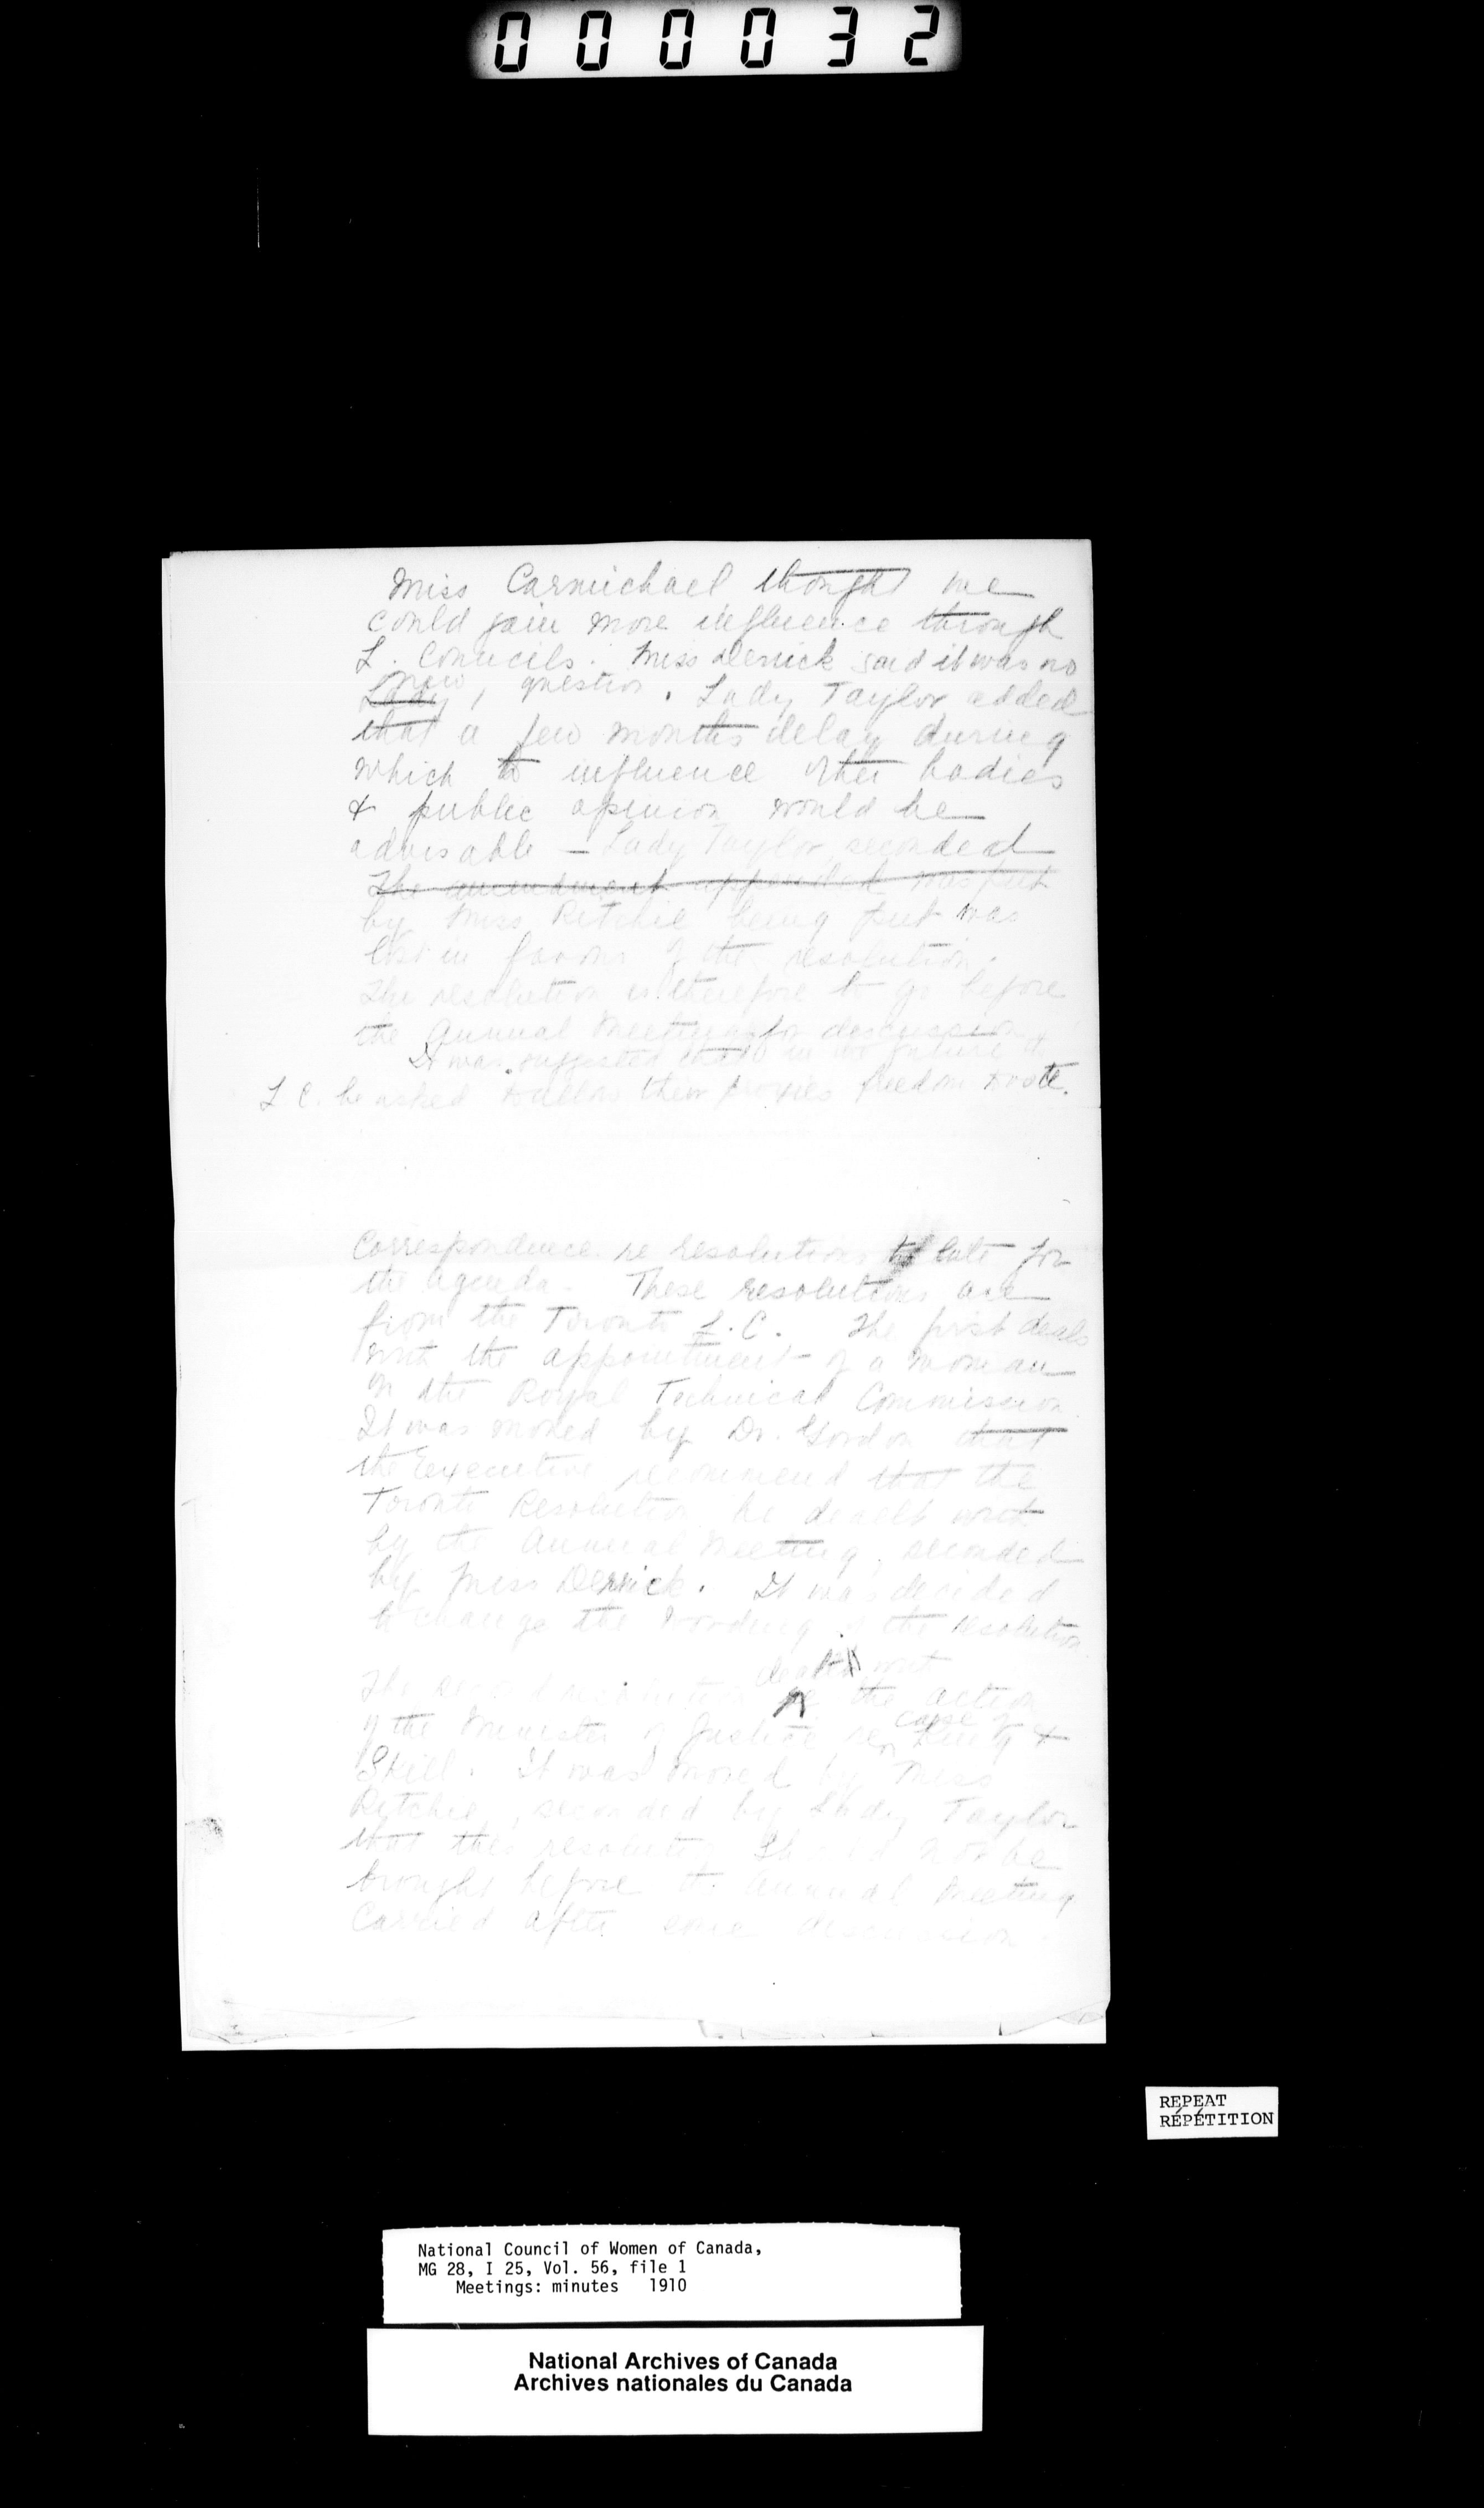 000032
Miss Carmichael thought we
could gain more influence through
L. Councils. Miss Derrick said it was no
new question. Lady Taylor added
that a few months delay during
which to influence other bodies
& public opinion would be
advisable – Lady Taylor seconded
The amendment appended was put
by Miss Ritchie being put was
lost in favour of the resolution.
The resolution is therefore to go before
the Annual Meeting for discussion
It was suggested that in the future the
L C. be asked to allow their proxies freedom to vote.
Correspondence re resolutions too late for
the agenda. These resolutions are
from the Toronto L. C. The first deals
with the appointment of a woman
on the Royal Technical Commission
It was moved by Dr. Gordon that
the Executive recommend that the
Toronto Resolution be dealt with
by the Annual Meeting, seconded
by Miss Derrick. It was decided
to change the wording of the resolution
The second resolution dealt with the action
of the Minister of Justice re case of &
Skill. It was moved by Miss
Ritchie, seconded by Lady Taylor
that this resolution should not be
brought before the Annual Meeting
Carried after some discussion.
REPEAT
RÉPÉTITION
National Council of Women of Canada,
MG 28, I 25, Vol. 56, file 1
Meetings: minutes 1910
National Archives of Canada
Archives nationales du Canada